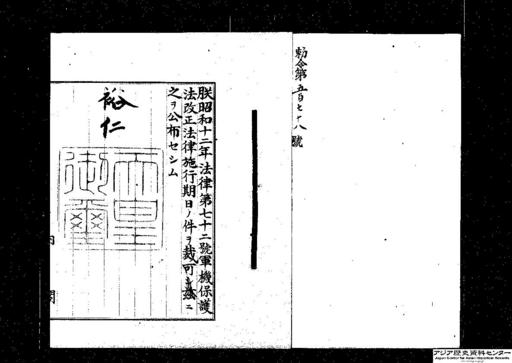 勅令第五百七十八號
朕昭和十二年法律第七十二號軍機保護
法改正法律施行期日ノ件ヲ裁可シ茲ニ
之ヲ公布セシム
裕仁
天皇
御璽
内閣
アジア歴史資料センター
Japan Center for Asian Historical Records